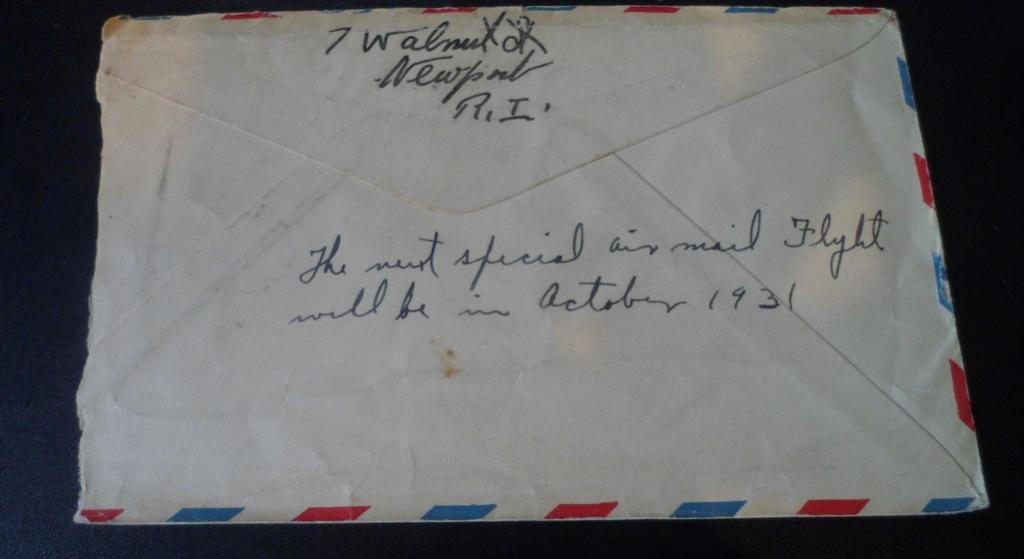 7 Walnut St
Newport
R.I.
The next special air mail Flyht
will be in October 1931